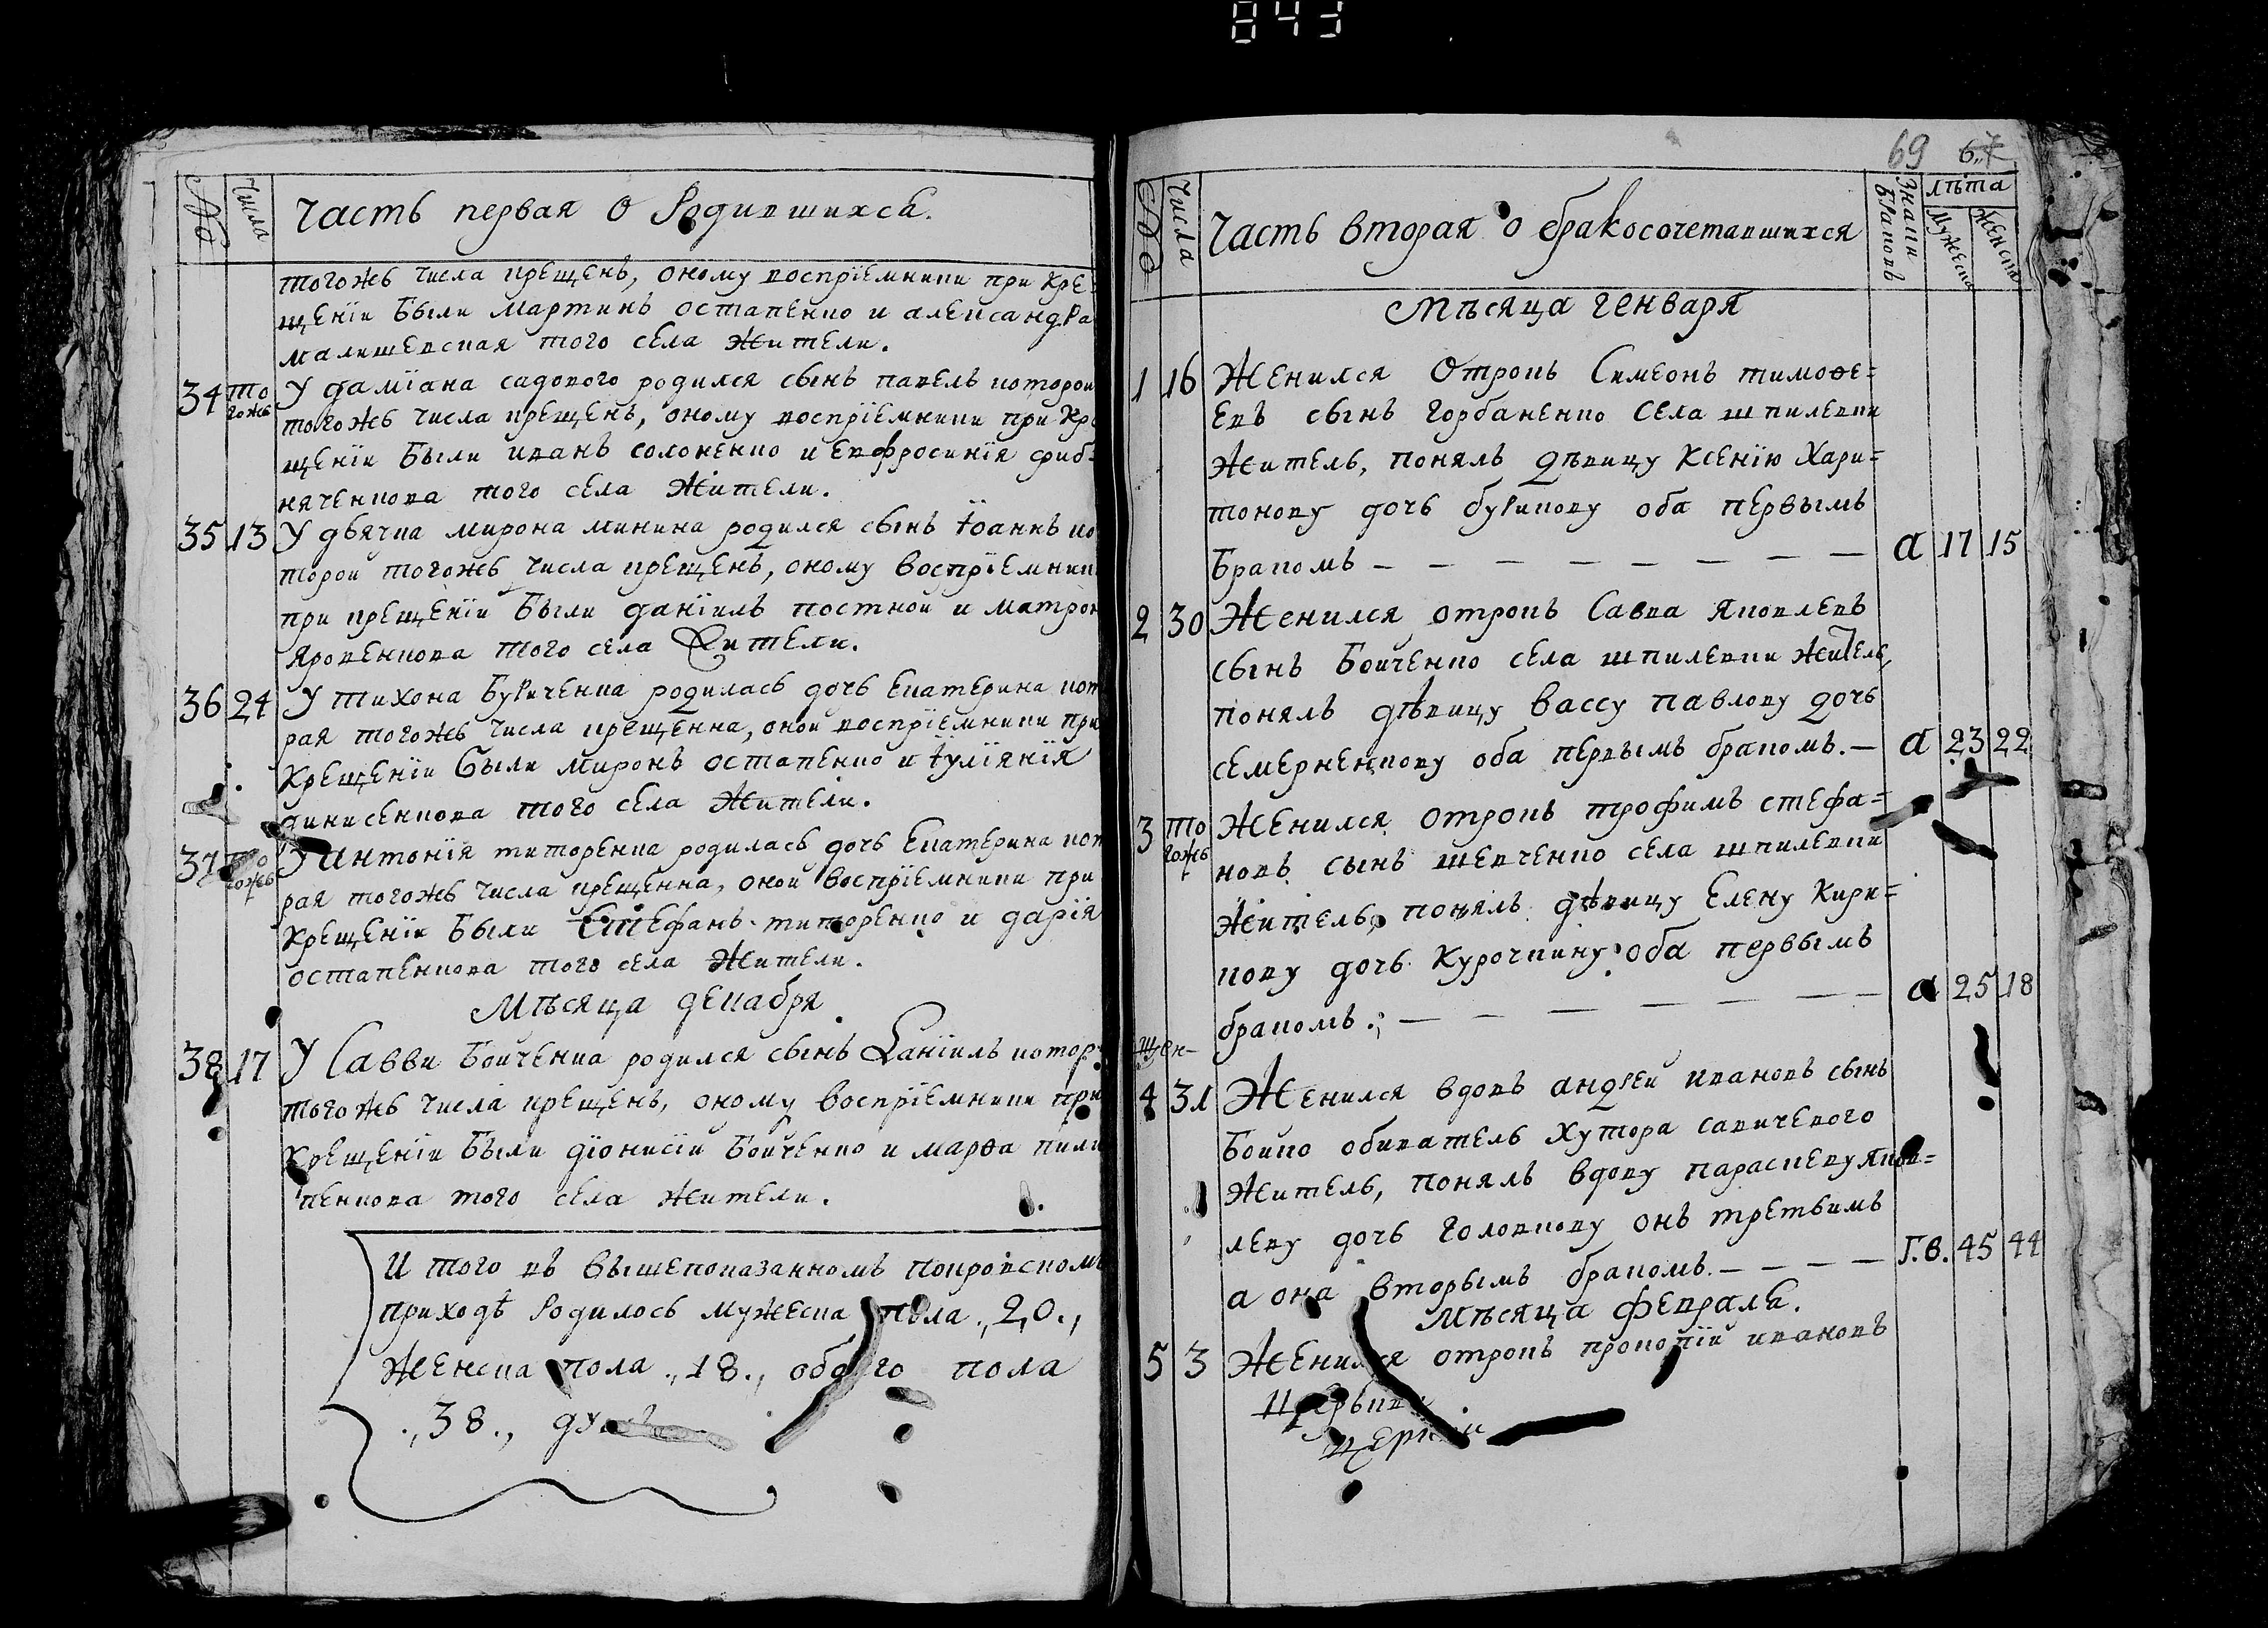 №
Числа
Часть первая о Родившихся.
тогожь числа крещенъ, оному воспрїемники при кре-
щенїи были мартинъ остапенко и александра
малишевская того села жители.
34 тогожь У дамїана садового родился сынъ павелъ которои
тогожь числа крещенъ, оному воспрїемники при кре
щенїи были иванъ солоненко и евфросинїя сриб-
няченкова того села жители.
35 13 У дьячка мирона минина родился сынъ їоаннъ ко
торои тогожь числа крещенъ, оному воспрїемник
при крещенїи были данїилъ постнои и матрон
яровенкова того села жители.
36 24 У тихона буриченка родилась дочь екатерина кот
рая тогожь числа крещенна, онои воспрїемники при
крещенїи были миронъ остапенко и їулїянїя
динисенкова того села жители.
37 тогожь У антонїя титоренка родилась дочь екатерина кот
рая тогожь числа крещенна, онои воспрїемники при
крещенїи были стефанъ титоренко и дарїя
остапенкова того села жители.
Мѣсяца декабря
38 17 У Савви боиченка родился сынъ Данїилъ котор
тогожь числа крещенъ, оному воспрїемники при
крещенїи были дїонисїи боиченко и марѳа пили
пенкова того села жители.
И того въ вышепоказанномъ покровскомъ
приходѣ родилось мужеска пола ,,20.,
женска пола .,18., обоего пола
.,38.,
69 67
№
Числа
Часть вторая о бракосочетавшихся
Знаки браковъ
лѣта
Мужеска
женска
Мѣсяца генваря
1 16 Женился отрокъ Симеонъ тимоѳе=
евъ сынъ горбаненко села шпилевки
житель, понялъ дѣвицу ксенїю хари=
тонову дочь бурикову оба первымъ
бракомъ — — — — — — — — а 17 15
2 30 Женился отрокъ Савва яковлевъ
сынъ боиченко села шпилевки житель,
понялъ дѣвицу вассу павлову дочь
семерненкову оба первымъ бракомъ. — а 23 22
3 тогожь Женился отрокъ трофимъ стефа=
новъ сынъ шевченко села шпилевки
житель, понялъ дѣвицу елену кири=
кову дочь курочкину оба первымъ
бракомъ. — — — — — а 25 18
4 31 Женился вдовъ андреи ивановъ сынъ
боико обиватель хутора савичевого
житель, понялъ вдову параскеву яков=
леву дочь головкову онъ третьимъ
а она вторымъ бракомъ. — — — — г.в. 45 44
Мѣсяца февраля.
5 3 Женился отрокъ прокопїи ивановъ